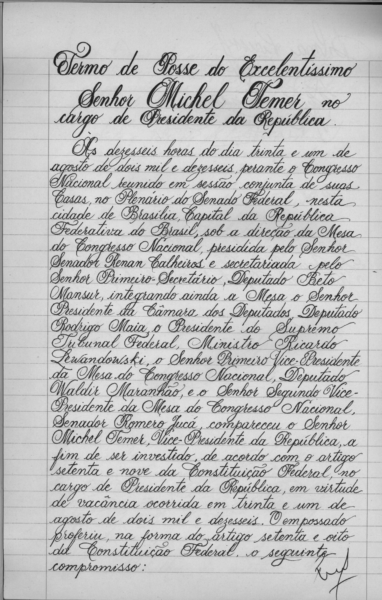 Termo de Posse do Excelentíssimo
Senhor Michel Temer no
cargo de Presidente da República.
Às dezesseis horas do dia trinta e um de
agosto de dois mil e dezesseis, perante o Congresso
Nacional reunido em sessão conjunta de suas
Casas, no Plenário do Senado Federal, nesta
cidade de Brasília, Capital da República
Federativa do Brasil, sob a direção da Mesa
do Congresso Nacional, presidida pelo Senhor
Senador Renan Calheiros e secretariada pelo
Senhor Primeiro-Secretário, Deputado Beto
Mansur, integrando ainda a Mesa o Senhor
Presidente da Câmara dos Deputados, Deputado
Rodrigo Maia, o Presidente do Supremo
Tribunal Federal, Ministro Ricardo
Lewandowski, o Senhor Primeiro Vice-Presidente
da Mesa do Congresso Nacional, Deputado
Waldir Maranhão, e o Senhor Segundo Vice-
Presidente da Mesa do Congresso Nacional,
Senador Romero Jucá, compareceu o Senhor
Michel Temer, Vice-Presidente da República, a
fim de ser investido, de acordo com o artigo
setenta e nove da Constituição Federal, no
cargo de Presidente da República, em virtude
de vacância ocorrida em trinta e um de
agosto de dois mil e dezesseis. O empossado
proferiu, na forma do artigo setenta e oito
da Constituição Federal, o seguinte
compromisso: